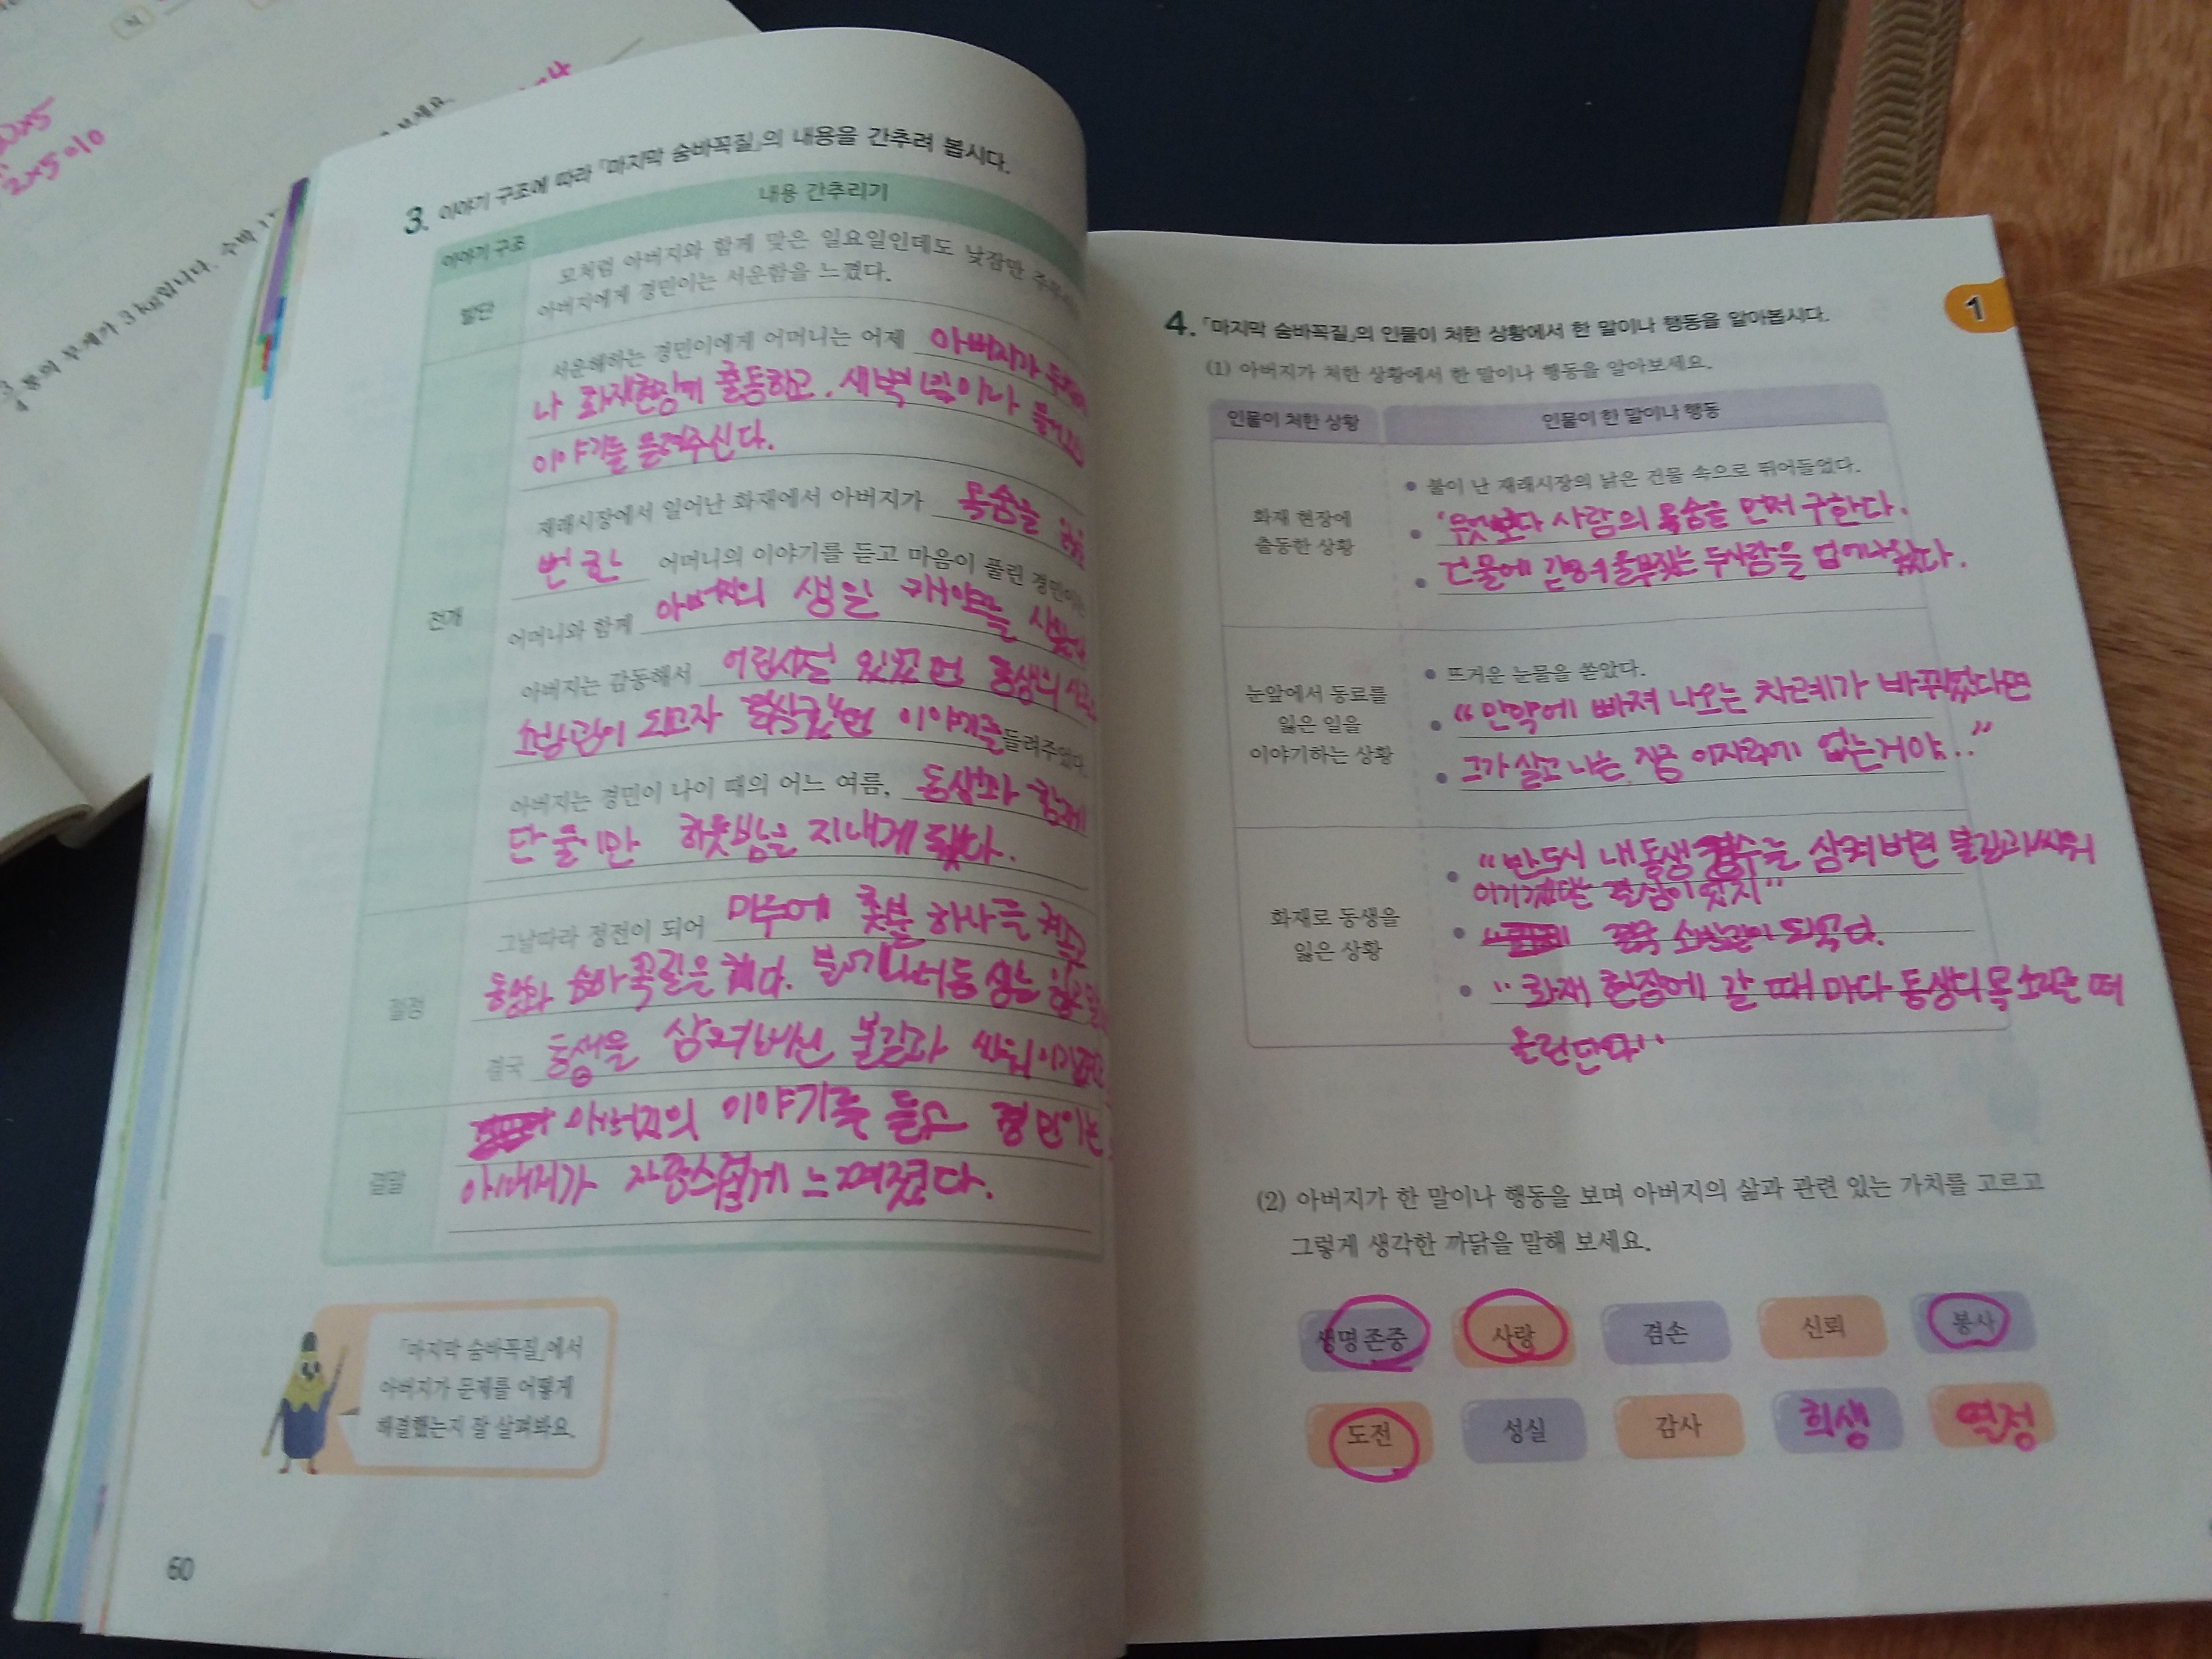 2×5
2×5=10
3. 이야기 구조에 따라 「마지막 숨바꼭질」의 내용을 간추려 봅시다.
이야기 구조
내용 간추리기
발단
모처럼 아버지와 함께 맞은 일요일인데도 낮잠만
아버지에게 경민이는 서운함을 느꼈다.
전개
서운해하는 경민이에게 어머니는 어제 아버지가
나 화재현장에 출동하고, 새벽
이야기를 들려주신다.
재래시장에서 일어난 화재에서 아버지가 목숨을
번 한 어머니의 이야기를 듣고 마음이 풀린 경민이는
어머니와 함께 아버지의 생일 케이크를
아버지는 감동해서 어린시절 있었던 동생의
소방관이 되고자 결심했던 이야기를 들려주었다.
아버지는 경민이 나이 때의 어느 여름, 동생과 함께
단 둘이만 하룻밤을 지내게 됐다.
절정
그날따라 정전이 되어 마루에 촛불 하나를 켜고
동생과 숨바꼭질을 했다.
결국 동생을 삼켜버린 불길과 싸워
결말
아버지의 이야기를 듣고 경민이는
아버지가 자랑스럽게 느껴졌다.
「마지막 숨바꼭질」에서
아버지가 문제를 어떻게
해결했는지 잘 살펴봐요.
60
1
4. 「마지막 숨바꼭질」의 인물이 처한 상황에서 한 말이나 행동을 알아봅시다.
(1) 아버지가 처한 상황에서 한 말이나 행동을 알아보세요.
인물이 처한 상황
인물이 한 말이나 행동
화재 현장에
출동한 상황
• 불이 난 재래시장의 낡은 건물 속으로 뛰어들었다.
• '무엇보다 사람의 목숨을 먼저 구한다.
• 건물에 갇혀 울부짖는 두사람을 업어나왔다.
눈앞에서 동료를
잃은 일을
이야기하는 상황
• 뜨거운 눈물을 쏟았다.
• "만약에 빠져 나오는 차례가 바뀌었다면
• 그가 살고 나는 지금 이자리에 없는거야.."
화재로 동생을
잃은 상황
• "반드시 내동생 경수를 삼켜버린 불길과싸워
이기겠다는 결심이 섰지"
• 결국 소방관이 되었다.
• "화재 현장에 갈 때 마다 동생의 목소리를 떠
올린단다"
(2) 아버지가 한 말이나 행동을 보며 아버지의 삶과 관련 있는 가치를 고르고
그렇게 생각한 까닭을 말해 보세요.
생명 존중 사랑 겸손 신뢰 봉사
도전 성실 감사 희생 열정